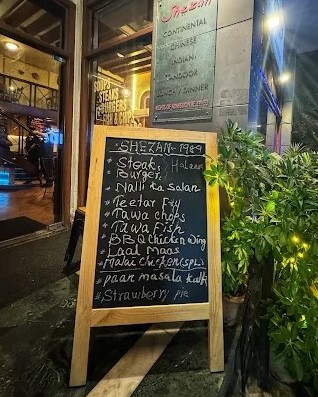 Shezan
CONTINENTAL
CHINESE
INDIAN
TANDOOR
LUNCH / DINNER
SOUPS
STEAKS
SHEZAN - 1989
* Steak, Halaan
* Burger,
* Nalli ka Salan
* Teetar Fry
* Tawa chops
* Tawa Fish
* BBQ Chicken Wing
* Laal Maas
* Malai Chicken (SPL)
* paan masala kulfi
* Strawberry pie